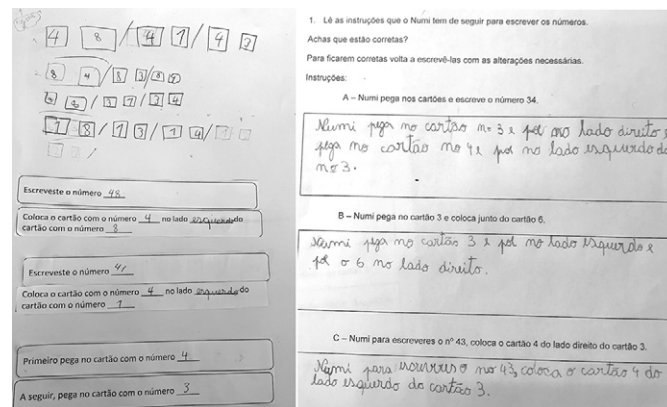 4 8 / 4 1 / 4 3
8 4 / 8 3 /
/ 3 7 / 3 4
1 8 / 1 3 / 1 4 /
Escreveste o número 48
Coloca o cartão com o número 4 no lado esquerdo do
cartão com o número 8
Escreveste o número 41
Coloca o cartão com o número 4 no lado esquerdo do
cartão com o número 1
Primeiro pega no cartão com o número 4
A seguir, pega no cartão com o número 3
1. Lê as instruções que o Numi tem de seguir para escrever os números.
Achas que estão corretas?
Para ficarem corretas volta a escrevê-las com as alterações necessárias.
Instruções:
A – Numi pega nos cartões e escreve o número 34.
Numi pega no cartão nº 3 e põe ao lado direito e
pega no cartão nº 4 e põe no lado esquerdo do
nº 3.
B – Numi pega no cartão 3 e coloca junto do cartão 6.
Numi pega no cartão 3 e põe no lado esquerdo e
põe o 6 no lado direito.
C – Numi para escreveres o nº 43, coloca o cartão 4 do lado direito do cartão 3.
Numi para escreveres o nº 43, coloca o cartão 4 do
lado esquerdo do cartão 3.